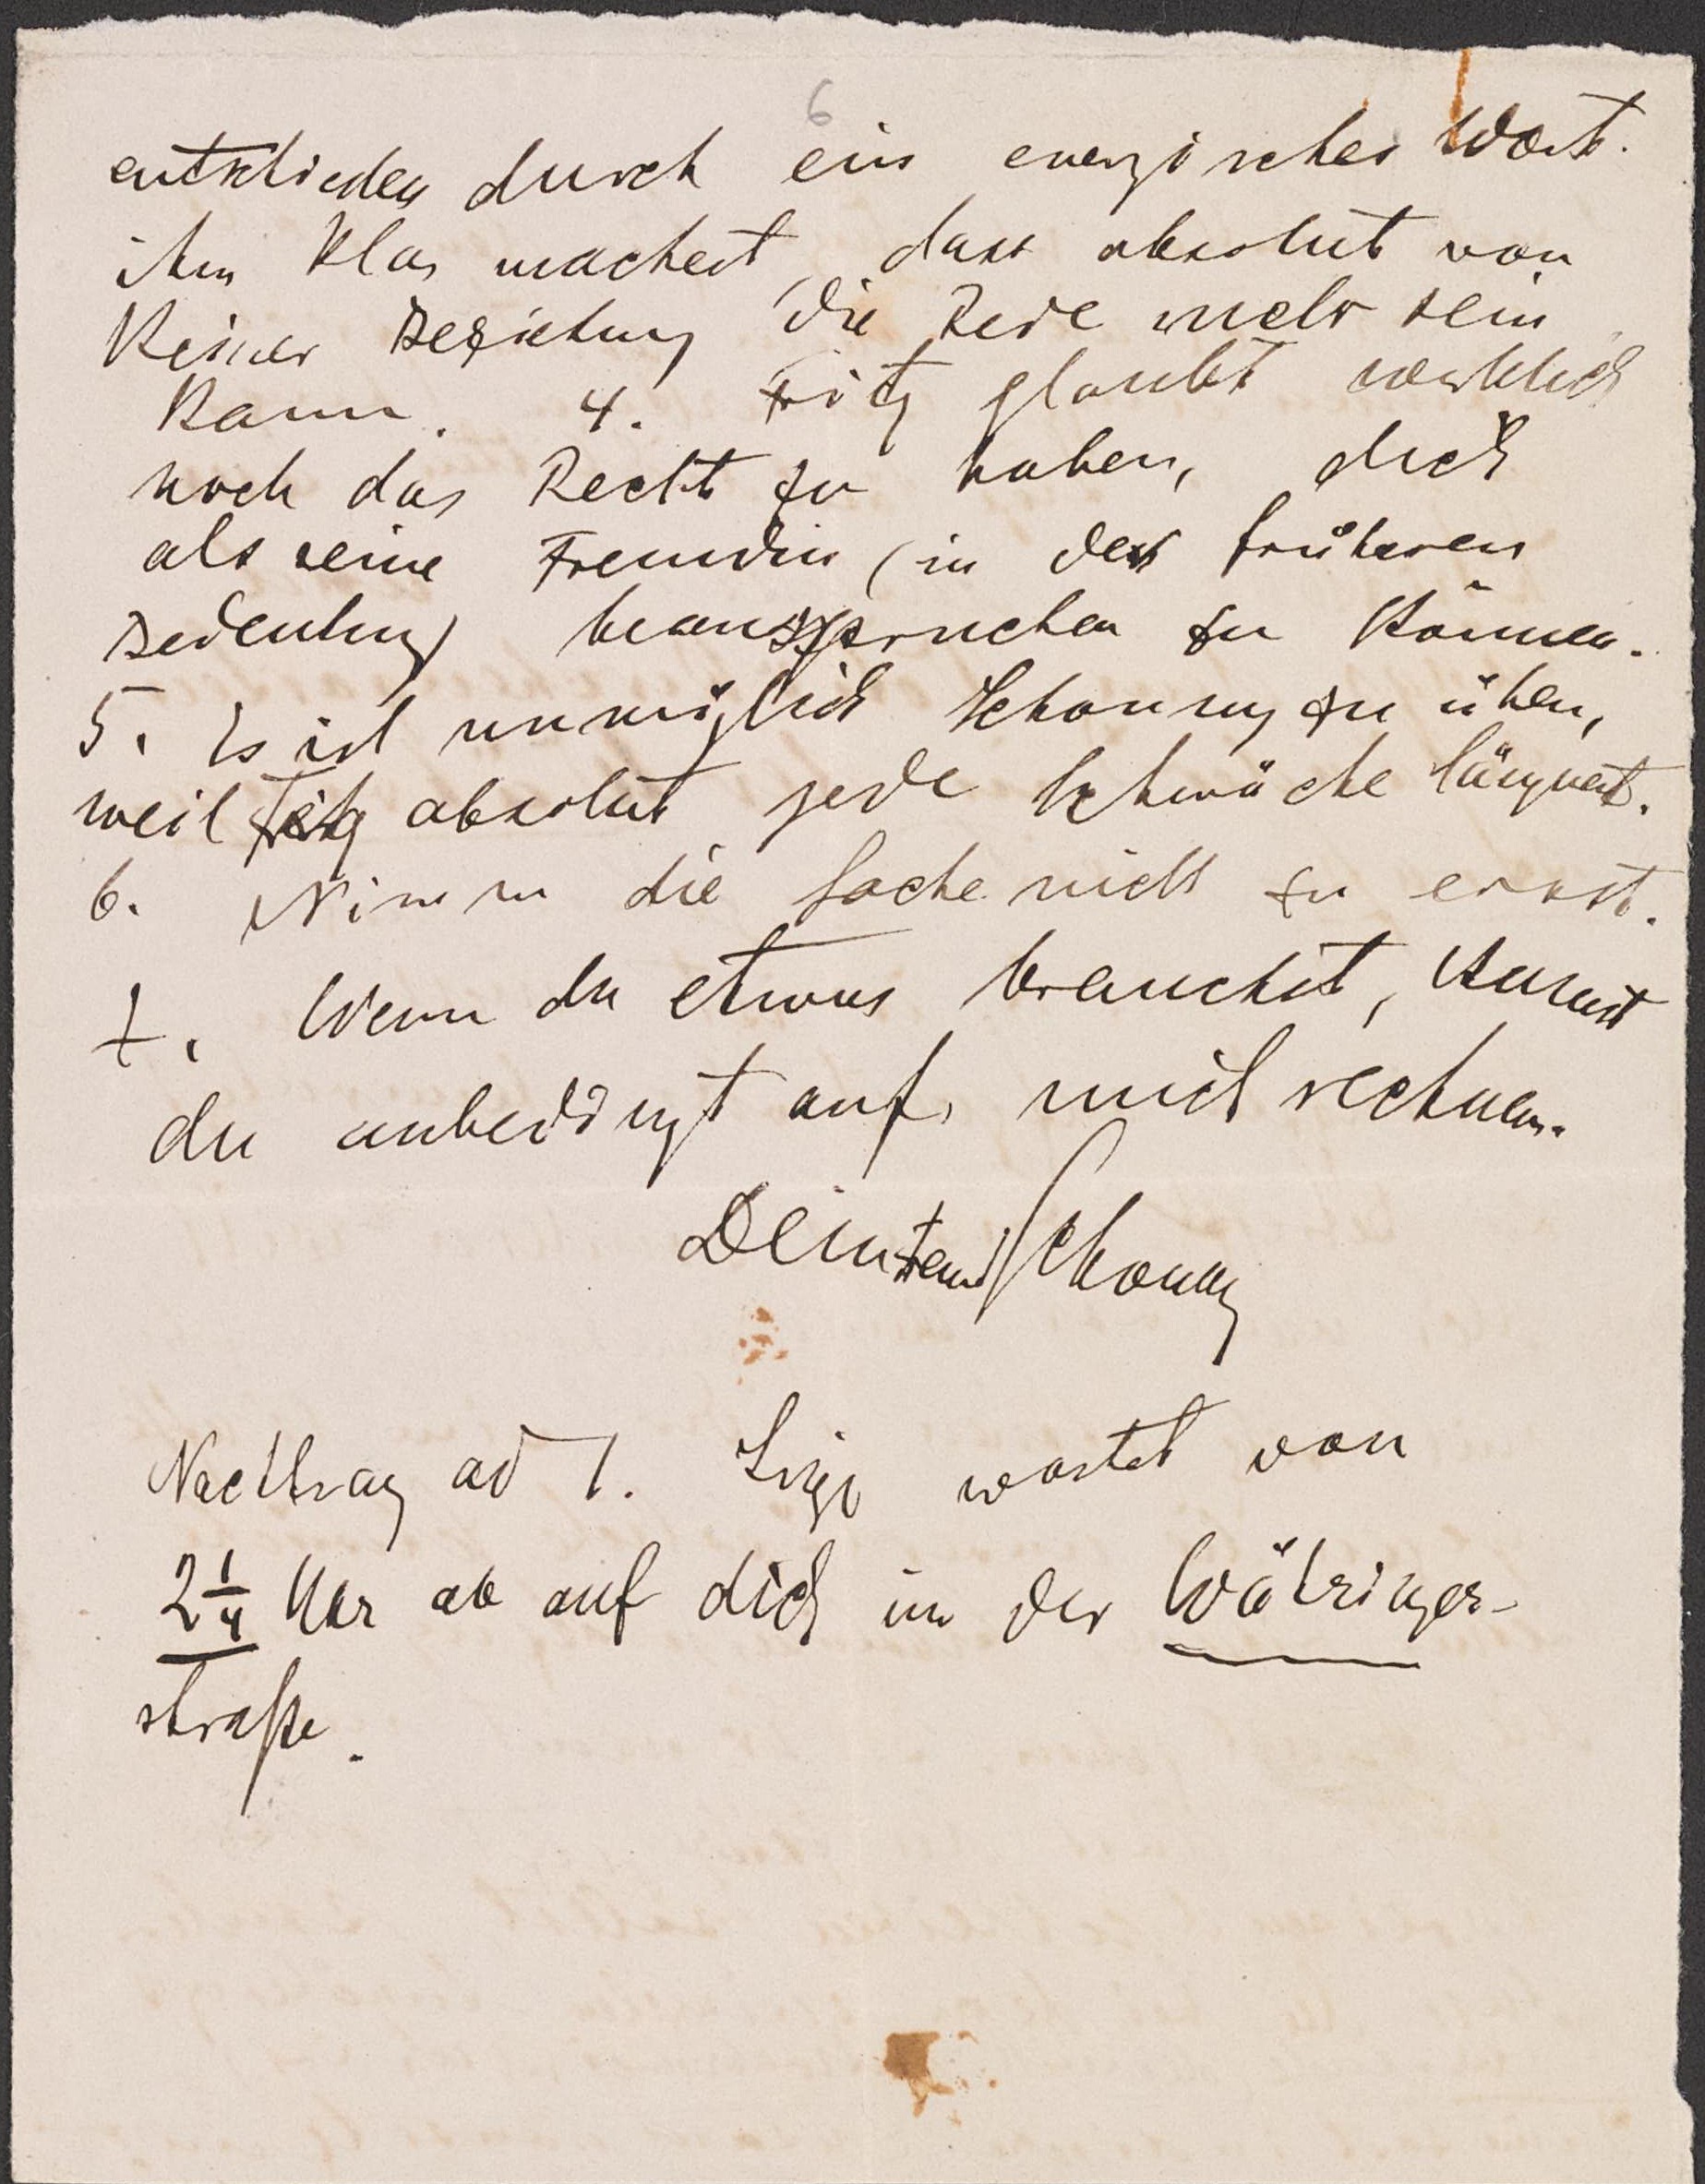 6
entschieden durch ein energisches Wort
ihm klar machest, dass absolut von
Keiner Beziehung die Rede mehr sein
Kann. 4. Fritz glaubt wirklich
noch das Recht zu haben, dich
als seine Freundin (in der früheren
Bedeutung beanspruchen zu Können.
5. Es ist unmöglich Schonung zu üben,
weil Fritz absolut jede Schwäche läugnet.
6. Nimm die Sache nicht zu ernst.
7. Wenn du etwas brauchst, Kannst
du unbedingt auf mich rechnen.
Dein Freund
Nachtrag ad 1. wartet von
2 1/4 Uhr ab auf dich in der Währinger-
straße.